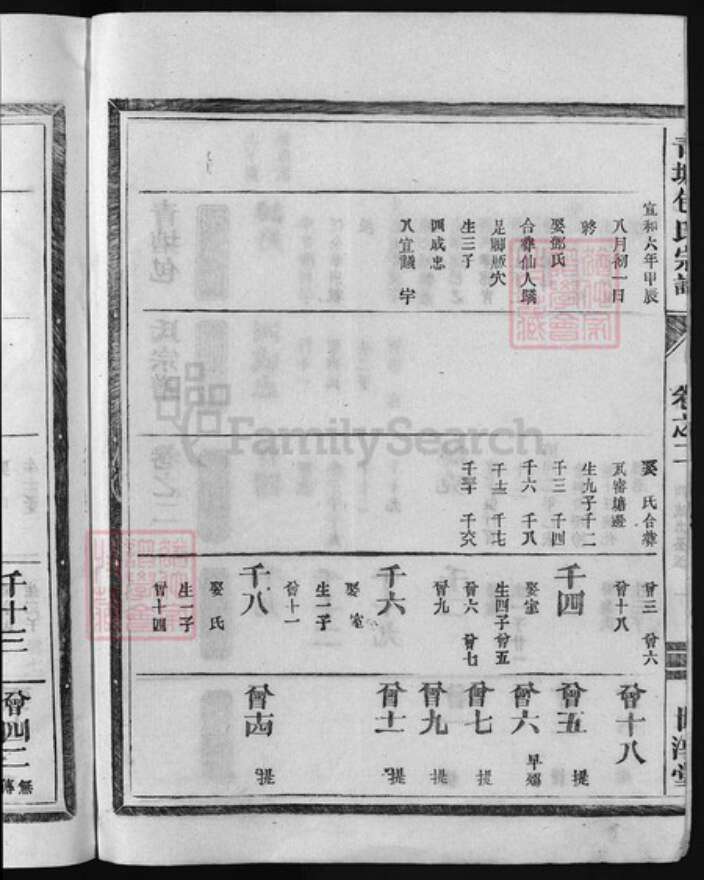 宗譜
卷之二
宣和六年甲辰
八月初一日
終
娶鄧氏
合葬仙人蹺
足關瓶穴
生三子
四成忠
八宜議字
娶氏合葬
瓦窰塘邊
生九子千二
千三 千四
千六 千八
千十三
曾三 曾六
曾十八
千四
娶室
生四子曾五
曾六 曾七
曾九
千六
娶室
生一子
曾十一
千八
娶氏
生一子
曾十四
曾十八
曾五 提
曾六 早殤
曾七 提
曾九 提
曾十一 提
曾十四 提
千十三
曾四二
無傳
FamilySearch